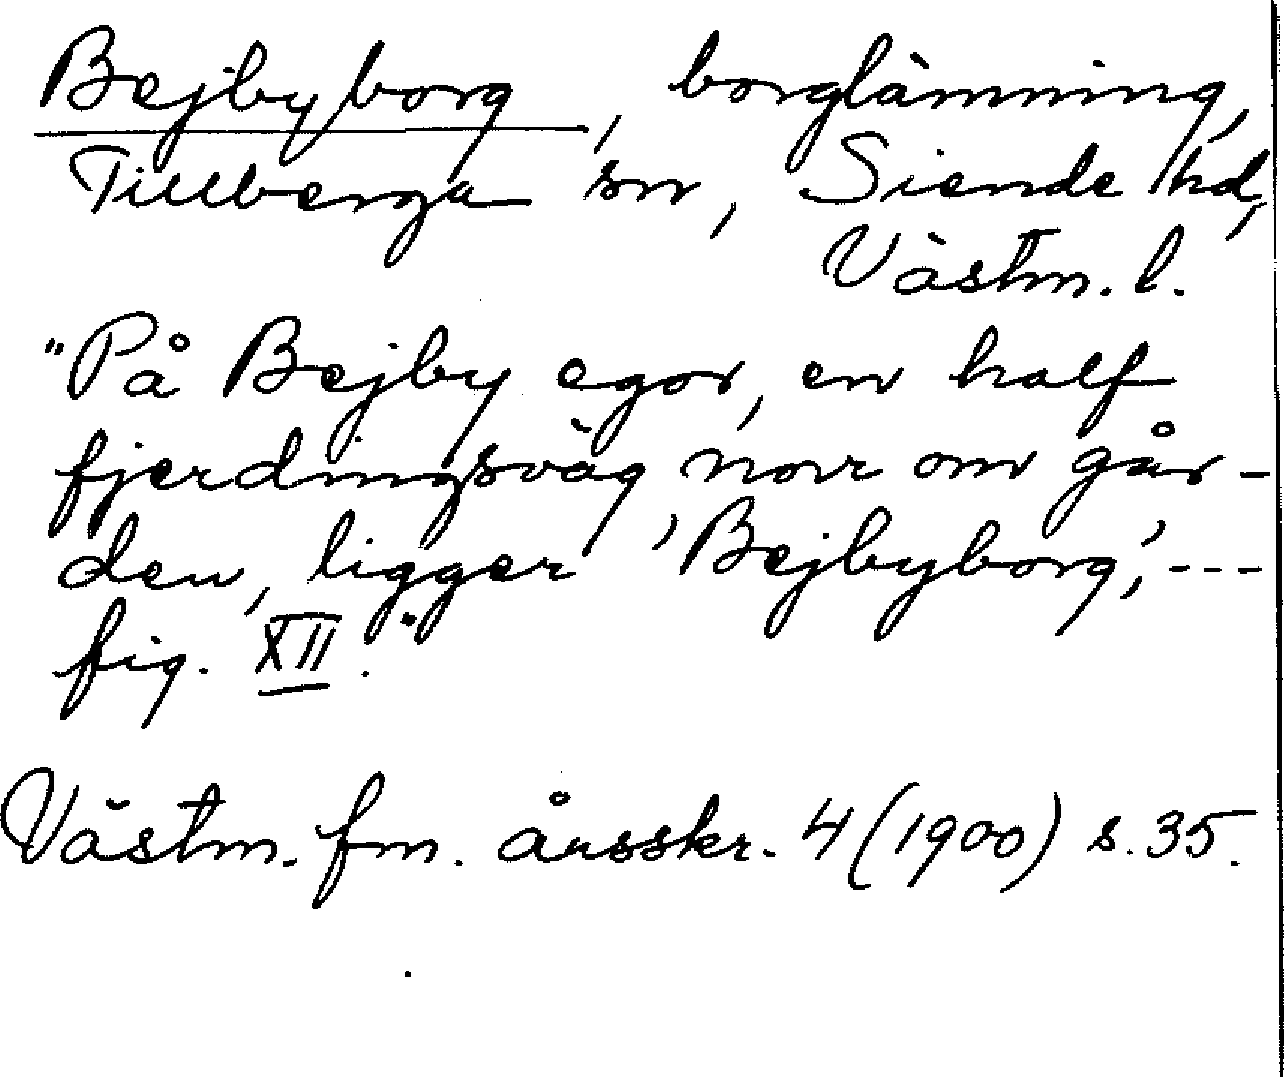 Bejbyborg, borglämning,
Tillberga sn, Siende hd,
Västm. l.
"På Bejby egor, en half
fjerdingsväg norr om går-
den, ligger 'Bejbyborg', ---
fig. XII."
Västm. fm. årsskr. 4 (1900) s. 35.